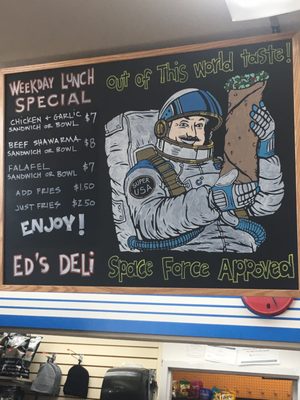 Weekday Lunch
Special
Chicken & Garlic
Sandwich or Bowl $7
Beef Shawarma
Sandwich or Bowl $8
Falafel
Sandwich or Bowl $7
Add Fries $1.50
Just Fries $2.50
Enjoy!
Ed's Deli
Out of This world taste!
Super
USA
Space Force Appoved